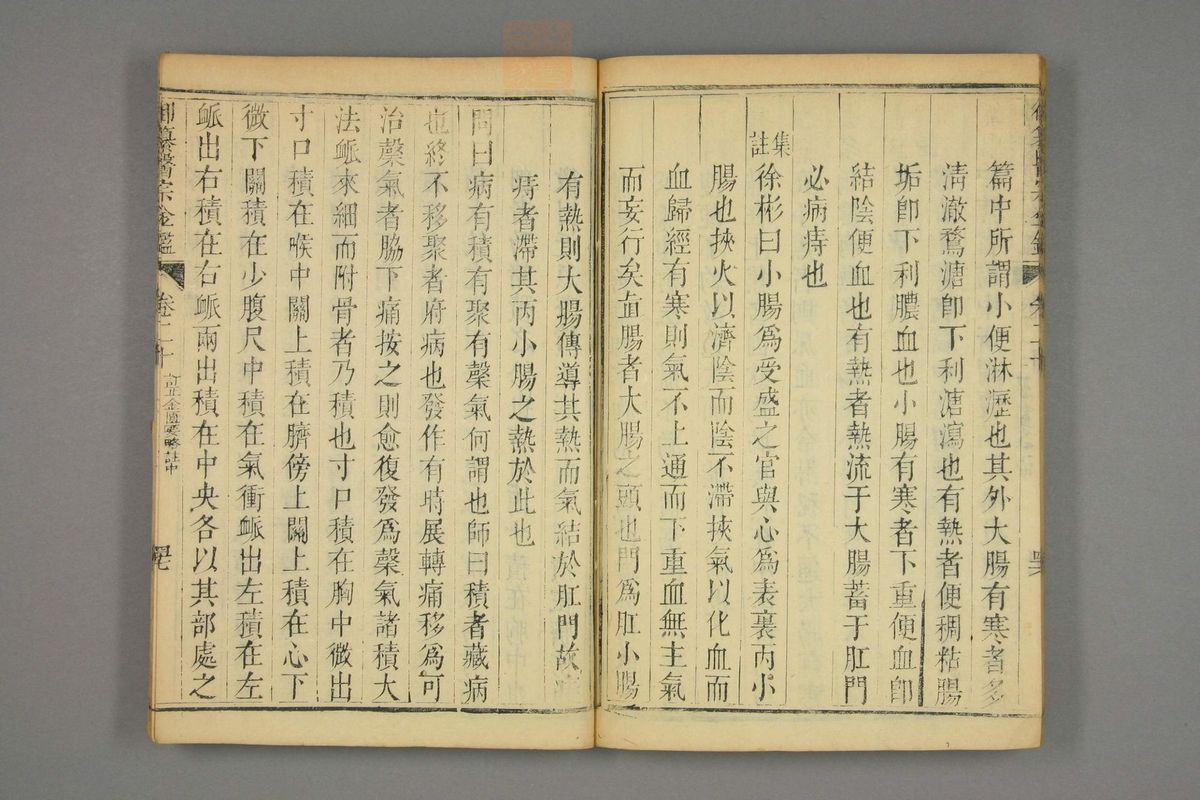 篇中所謂小便淋瀝也其外大腸有寒者多
清澈鶩溏卽下利溏瀉也有熱者便稠粘腸
垢卽下利膿血也小腸有寒者下重便血卽
結陰便血也有熱者熱流于大腸蓄于肛門
必病痔也
集註徐彬曰小腸爲受盛之官與心爲表裏丙小
腸也挾火以濟陰而陰不滯挾氣以化血而
血歸經有寒則氣不上通而下重血無主氣
而妄行矣直腸者大腸之頭也門爲肛小腸
有熱則大腸傳導其熱而氣結於肛門故
痔者滯其丙小腸之熱於此也
問曰病有積有聚有䅽氣何謂也師曰積者藏病
也終不移聚者府病也發作有時展轉痛移爲可
治䅽氣者脇下痛按之則愈復發爲䅽氣諸積大
法䘑來細而附骨者乃積也寸口積在胸中微出
寸口積在喉中關上積在臍傍上關上積在心下
微下關積在少腹尺中積在氣衝䘑出左積在左
䘑出右積在右䘑兩出積在中央各以其部處之
御纂醫宗金鑑
卷二十
訂正金匱要略註中